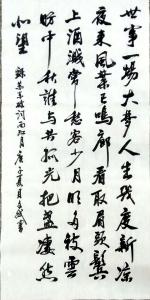 世事一場大夢人生幾度新涼
夜来風葉已鳴廊看取眉頭鬢
上酒賤常愁客少月明多被雲
妨中秋誰与共孤光把盞凄然
北望 蘇東坡詞西江月庚子夏月書